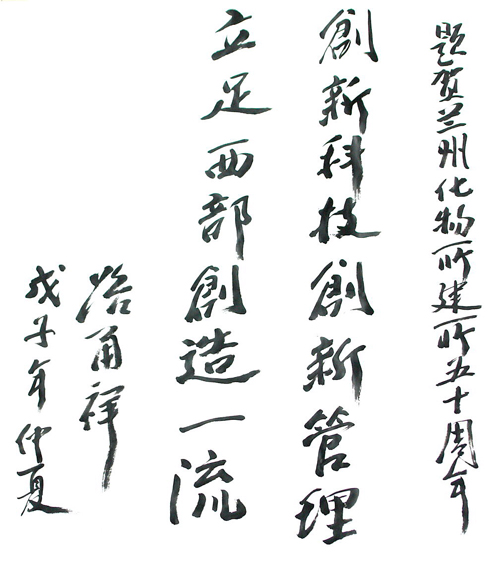 题贺兰州化物所建所五十周年
創新科技創新管理
立足西部創造一流
路甬祥
戊子年仲夏